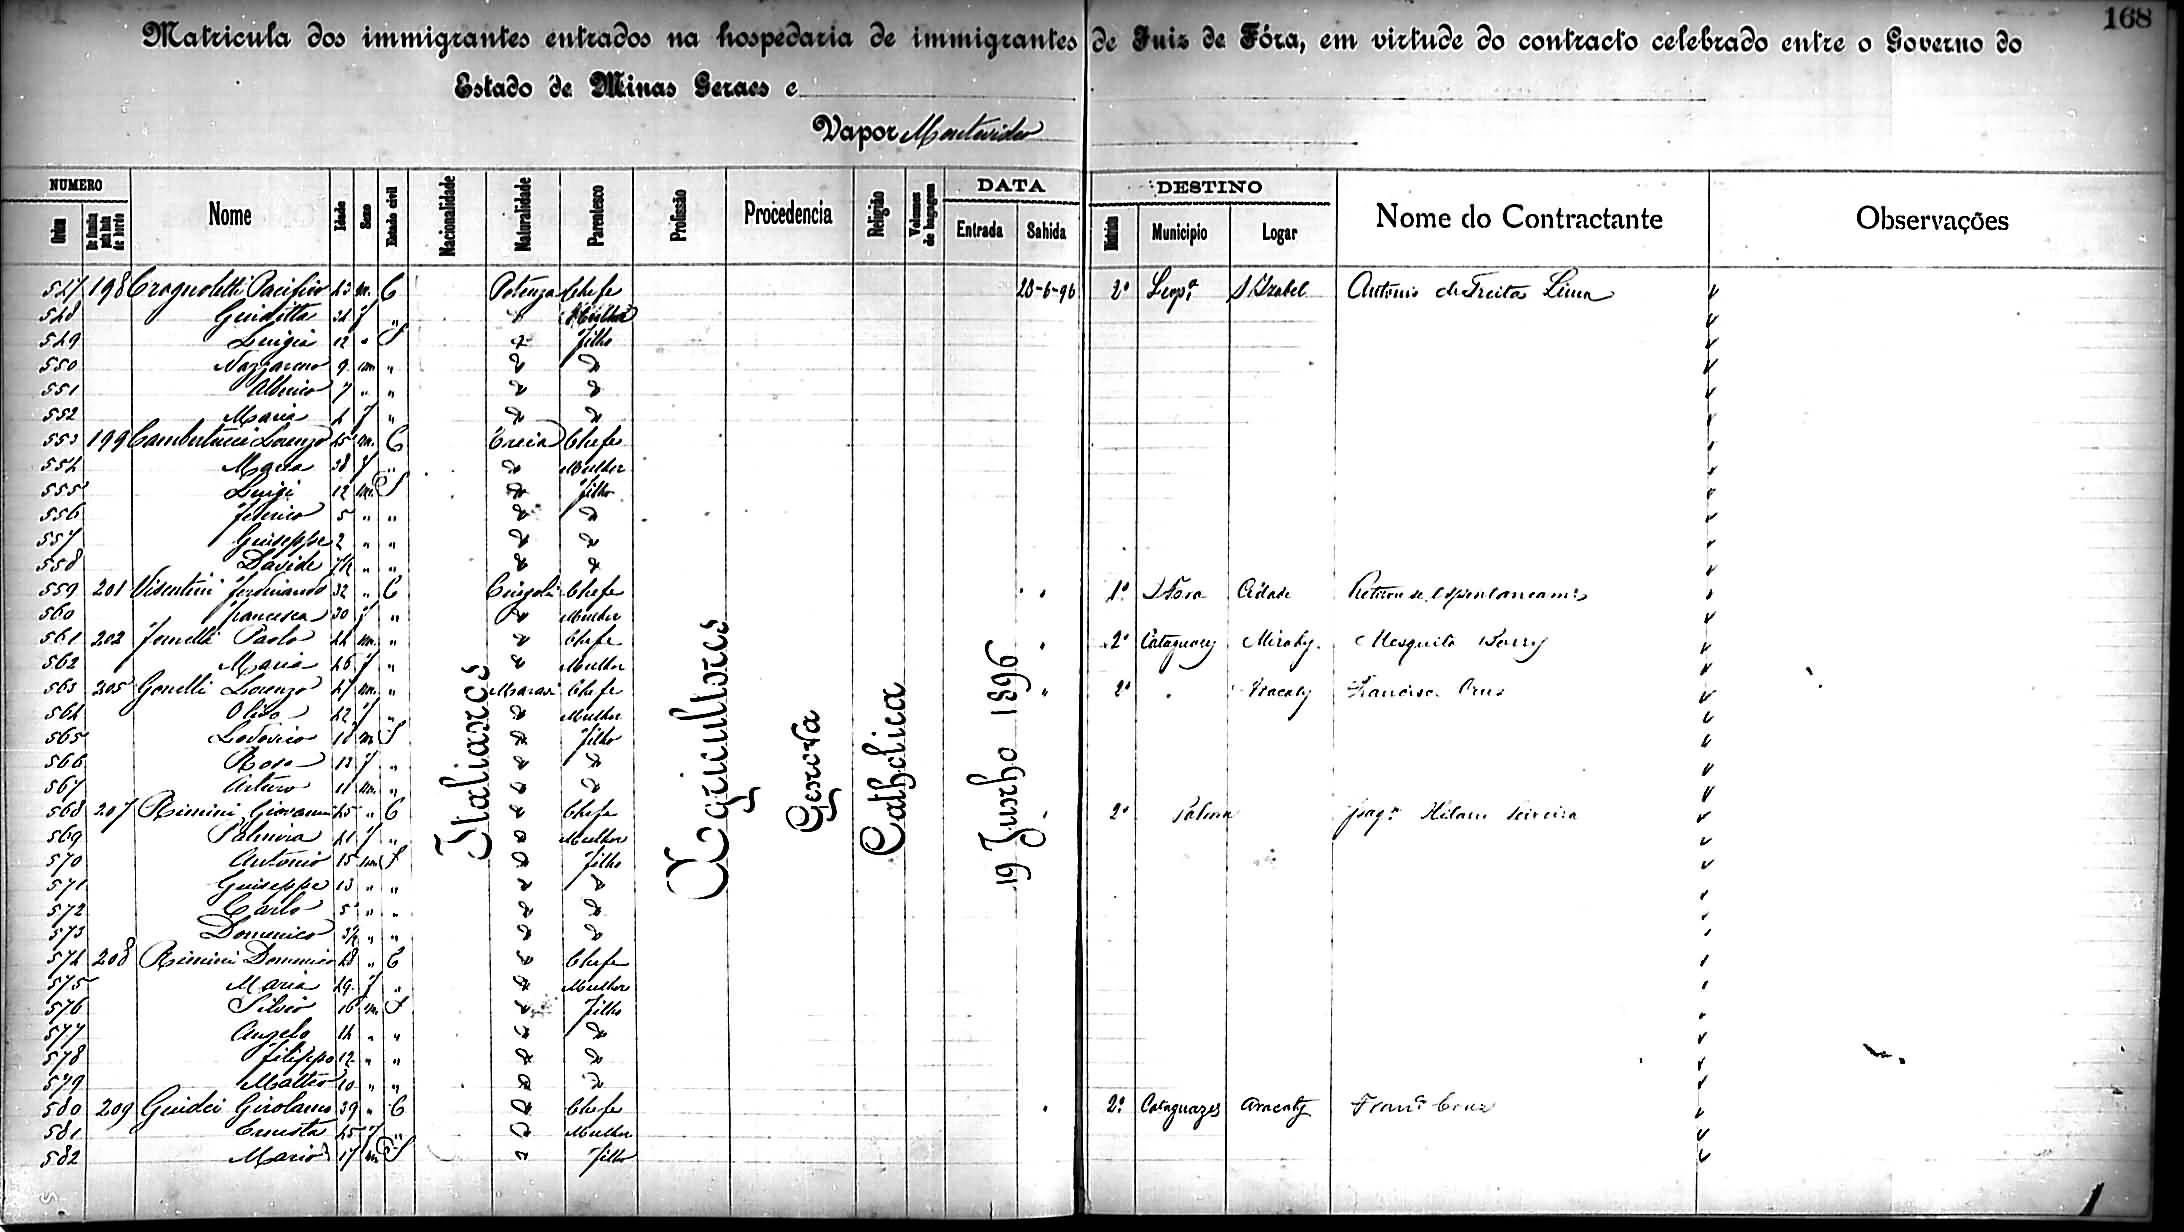 168
Matricula dos immigrantes entrados na hospedaria de immigrantes de Juiz de Fóra, em virtude do contracto celebrado entre o Governo do
Estado de Minas Geraes e
Vapor Montevideo
NUMERO Nome Idade Sexo Estado civil Nacionalidade Naturalidade Parentesco Profissão Procedencia Religião Volumes de bagagem DATA DESTINO Nome do Contractante Observações
Ordem Entrada Sahida Districto Municipio Logar
547 198 Crognoletti Pacifico 43 m. C Potenza Chefe 28-6-96 2º Leopª S. Izabel Antonio de Freitas Lima
548 Giuditta 34 f " " Mulher
549 Luigia 12 " S " filho
550 Nazzareno 9 m " " "
551 Alberico 7 " " " "
552 Maria 4 f " " "
553 199 Lorenzo 45 m. C Treia Chefe
554 Maria 38 f " " Mulher
555 Luigi 12 m. S " filho
556 Federico 5 " " " "
557 Giuseppe 2 " " " "
558 Davide " " " "
559 201 Visentini Ferdinando 32 " C Cingoli Chefe " " 1º J Fora Cidade
560 Francesca 30 f " " Mulher
561 202 Paolo 44 m. " " Chefe " 2º Cataguazes Mirahy Mesquita
562 Maria 46 f " " Mulher
563 205 Gonelli Lorenzo 47 m. " Chefe " 2º " Aracaty Francisco Cruz
564 42 f " " Mulher
565 Lodovico m S " filho
566 Rosa 13 f " " "
567 Arturo 11 m. " " "
568 207 Rimini Giovanni 45 " C " Chefe " 2º Palma
569 Palmira 41 f " " Mulher
570 Antonio 15 m S " filho
571 Giuseppe 13 " " " "
572 Carlo 5 " " " "
573 Domenico " " " "
574 208 Rimini Domenico 48 " C " Chefe
575 Maria 49 f " " Mulher
576 Silvio 16 m. S " filho
577 Angelo 14 " " " "
578 Filippo 12 " " " "
579 Matteo 10 " " " "
580 209 Guidei Girolamo 39 " C " Chefe " 2º Cataguazes Aracaty Franco Cruz
581 Ernesta 45 f " " Mulher
582 Mario 17 m S " filho
Italianos
Agricultores
Genova
Catholica
19 Junho 1896